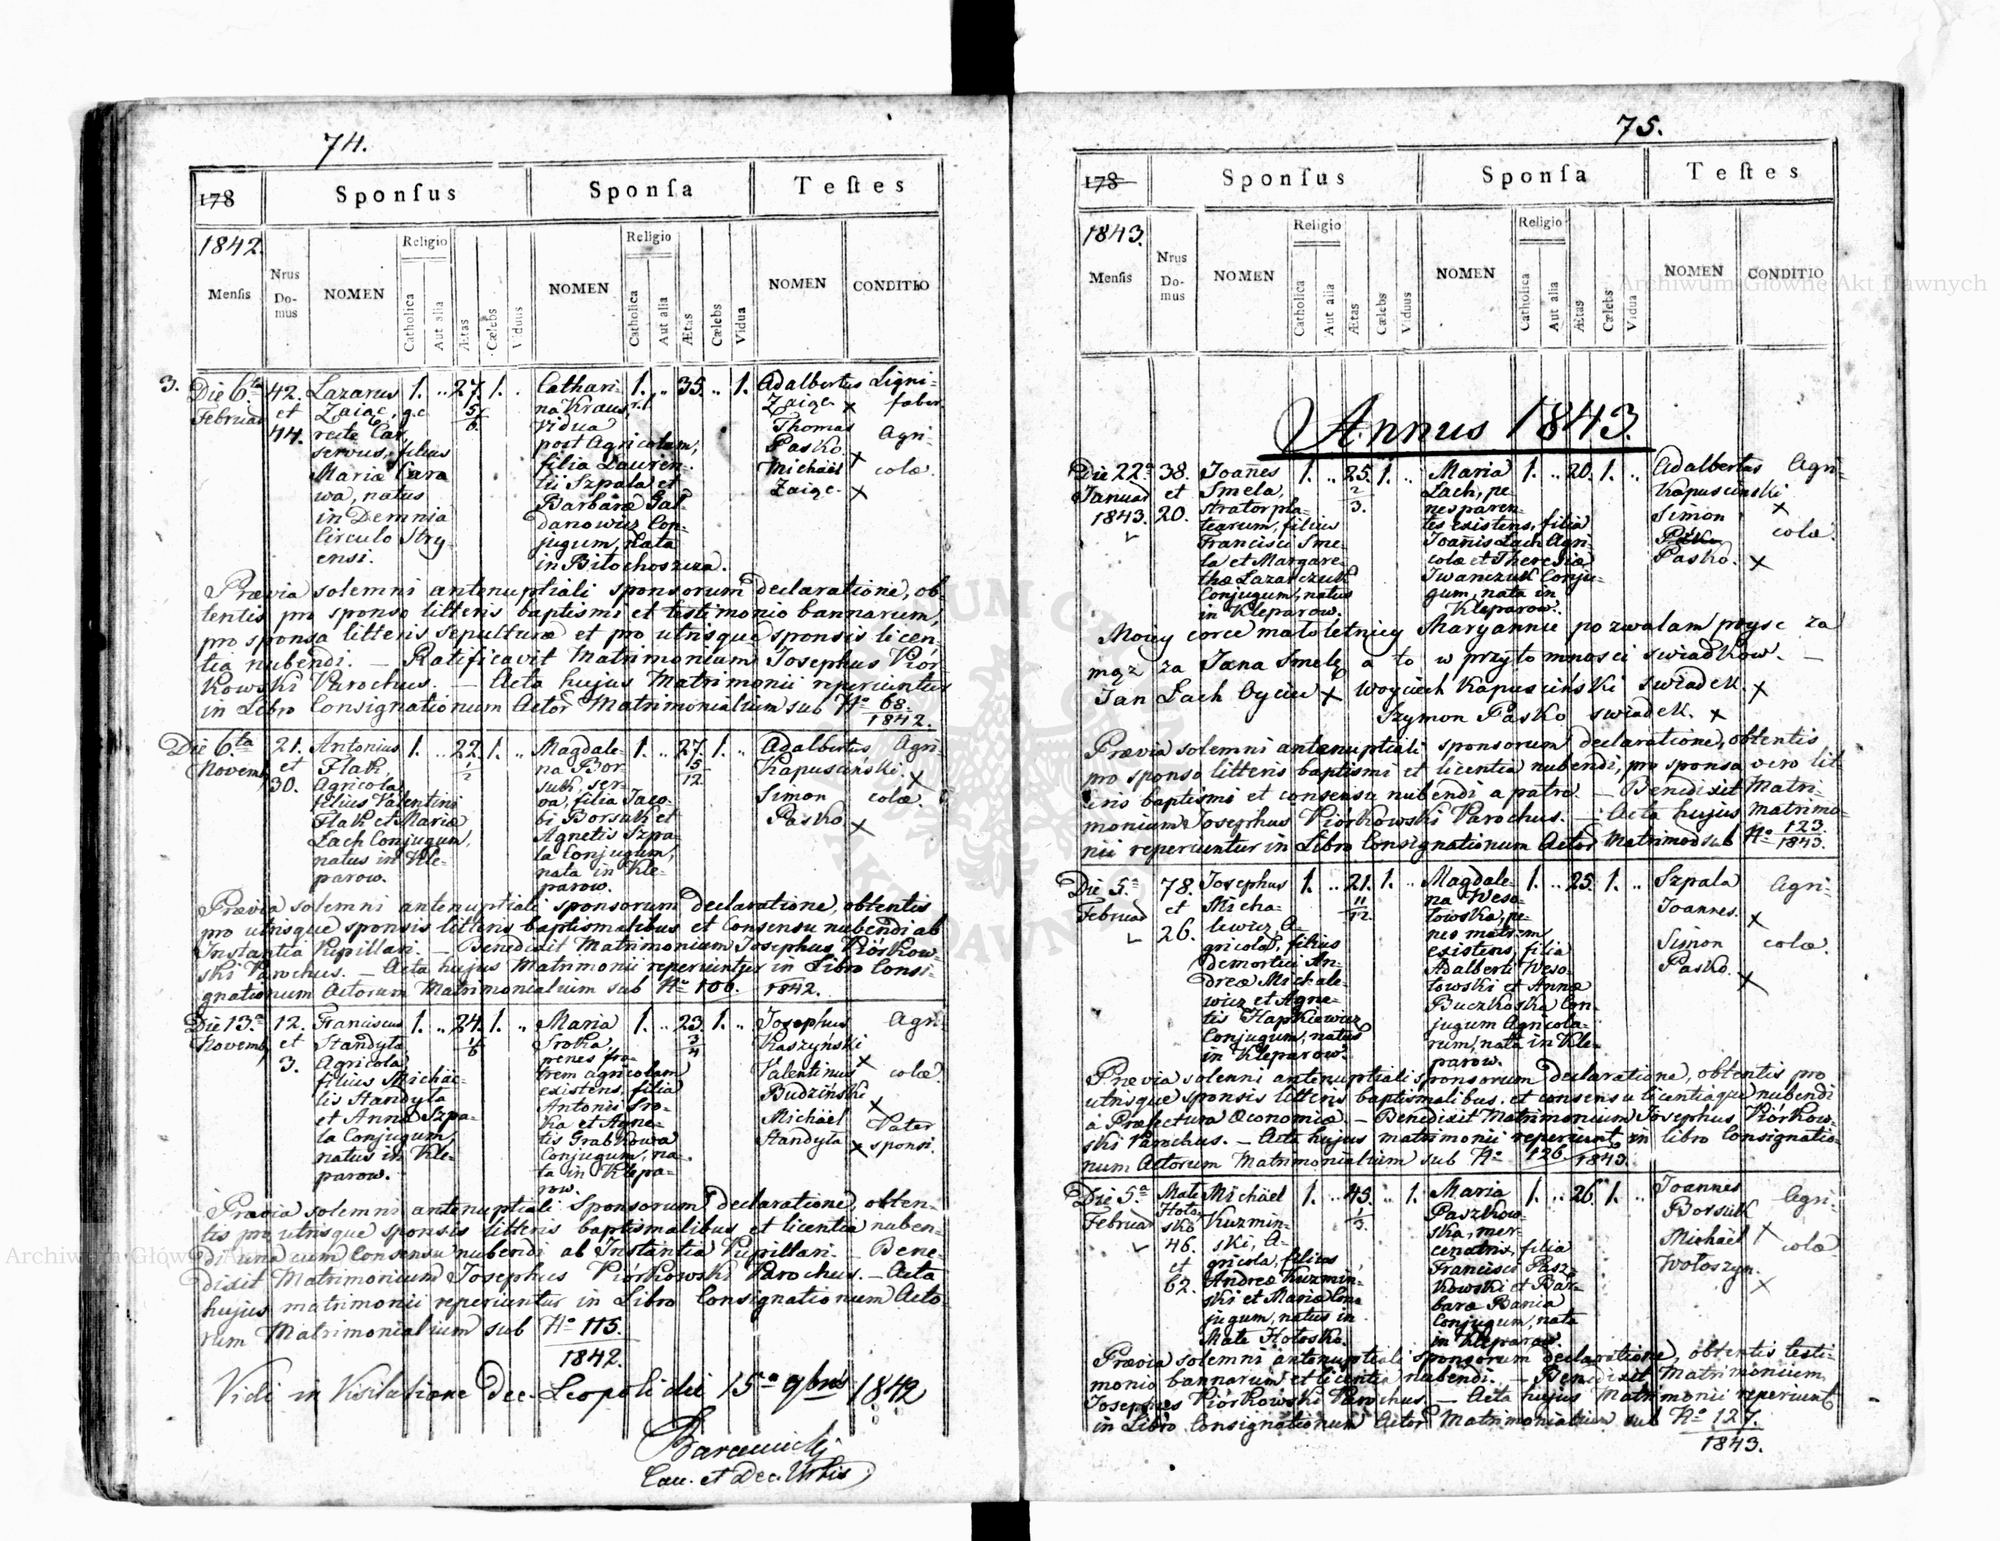 74.
178
Sponſus
Sponſa
Teſtes
1842.
Menſis
Nrus Do-mus
NOMEN
Religio
Catholica
Aut alia
Ætas
Cælebs
Viduus
NOMEN
Religio
Catholica
Aut alia
Ætas
Cælebs
Vidua
NOMEN
CONDITIO
3.
Die 6ta
Februar
42.
et
44.
Lazarus
Zaigc, g.c
recte Car,
servus, filius
Mariæ Cara
wa, natus
in Demnia
Circulo Stry-
ensi.
1. .. 27. 1. ..
5/6.
Cathari-
na Kraus, r.l.
vidua
post Agricolam,
filia Lauren-
tii Szpala et
Barbaræ Gal-
danowicz Con-
jugum, nata
in Bitochoszcza.
1. .. 35. .. 1.
Adalbertus
Zaigc. x
Thomas
Pasko. x
Michäel
Zaigc. x
Ligni-
faber.
Agri-
colæ.
Prævia solemni antenuptiali sponsorum declaratione, ob-
tentis pro sponso litteris baptismi et testimonio bannarum,
pro sponsa litteris sepulturæ et pro utrisque sponsis licen-
tia nubendi. — Ratificavit Matrimonium Josephus Piór-
kowski Parochus. — Acta hujus Matrimonii reperiuntur
in Libro Consignationum Actor Matrimonialium sub No 68.
1842.
Die 6ta
Novemb
21.
et
30.
Antonius
Flak,
Agricola
filius Valentini
Flak et Mariæ
Lach Conjugum,
natus in Kle-
parow.
1. .. 22. 1. ..
1/2
Magdale-
na Bor-
suk, ser-
va, filia Jaco-
bi Borsuk et
Agnetis Szpa-
la Conjugum,
nata in Kle-
parow.
1. .. 27. 1. ..
5/12.
Adalbertus
Kapuscinski. x
Simon
Pasko x
Agri-
colæ.
Prævia solemni antenuptiali sponsorum declaratione, obtentis
pro utrisque sponsis litteris baptismalibus et Consensu nubendi ab
Instantia Pupillari. — Benedixit Matrimonium Josephus Piórkow-
ski Parochus. — Acta hujus Matrimonii reperiuntur in Libro Consi-
gnationum Actorum Matrimonialium sub No 100. 1842.
Die 13.a
Novemb
12.
et
3.
Franciscus
Standyła
Agricola,
filius Michäe-
lis Standyła
et Annæ Szpa-
la Conjugum,
natus in Kle-
parow.
1. .. 24. 1. ..
1/6
Maria
Sroka,
penes fra-
trem agricolam
existens, filia
Antonii Sro-
ka et Agne-
tis Grabkowa
Conjugum, na-
ta in Klepa-
row.
1. .. 23. 1. ..
3/4
Josephus
Kaszyński x
Valentinus
Budziński x
Michäel
Standyła x
Agri-
colæ.
Pater
sponsi.
Prævia solemni antenuptiali Sponsorum declaratione, obten-
tis pro utrisque sponsis litteris baptismalibus et licentia nuben-
di una cum Consensu nubendi ab Instantia Pupillari. — Bene-
dixit Matrimonium Josephus Piórkowski Parochus. — Acta
hujus matrimonii reperiuntur in Libro Consignationum Acto-
rum Matrimonialium sub No 115.
1842.
Vidi in Visitatione Dec. Leopoli die 15a 9bris 1842
Can. et Dec. Urbis
75.
178
Sponſus
Sponſa
Teſtes
1843.
Menſis
Nrus Do-mus
NOMEN
Religio
Catholica
Aut alia
Ætas
Cælebs
Viduus
NOMEN
Religio
Catholica
Aut alia
Ætas
Cælebs
Vidua
NOMEN
CONDITIO
Annus 1843.
Die 22a
Januar
1843.
38.
et
20.
Joañes
Smela,
strator pla-
tearum, filius
Francisci Sme-
la et Margare-
thæ Lazarczuk
Conjugum, natus
in Kleparow.
1. .. 25. 1. ..
2/3.
Maria
Lach, pe-
nes paren-
tes existens, filia
Joañis Lach Agri-
colæ et Theresiæ
Iwanczuk Conju-
gum, nata in
Kleparow.
1. .. 20. 1. ..
Adalbertus
Kapuscinski
x
Simon
Pasko. x
Agri-
colæ.
Moiey corce małoletniey Maryannie pozwalam poysc za
mąz za Jana Smelę a to w przytomnosci swiadkow. —
Jan Lach Oyciec x Woyciech Kapusciński swiadek. x
Szymon Pasko swiadek. x
Prævia solemni antenuptiali sponsorum declaratione, obtentis
pro sponso litteris baptismi et licentia nubendi, pro sponsa vero lit-
teris baptismi et consensu nubendi a patre. — Benedixit Matri-
monium Josephus Piorkowski Parochus. — Acta hujus Matrimo-
nii reperiuntur in Libro Consignationum Actor Matrimon sub No 123.
1843.
Die 5.a
Februar
78.
et
26.
Josephus
Micha-
lewicz, A-
gricola, filius
demortui An-
dreæ Michale-
wicz et Agne-
tis Hapkiewicz
Conjugum, natus
in Kleparow.
1. .. 21. 1. ..
11/12.
Magdale-
na Weso-
łowska, pe-
nes matrem
existens, filia
Adalberti Weso-
łowski et Annæ
Buczkoska Con-
jugum Agricola-
rum, nata in Kle-
parow.
1. .. 25. 1. ..
Szpala
Joannes. x
Simon
Pasko. x
Agri-
colæ.
Prævia solemni antenuptiali sponsorum declaratione, obtentis pro
utrisque sponsis litteris baptismalibus, et consensu licentiaque nubendi
a Præfectura Œconomica. — Benedixit Matrimonium Josephus Piórkow-
ski Parochus. — Acta hujus matrimonii reperiunt in libro Consignatio-
num Actorum Matrimonialium sub No 126/1843.
Die 5.a
Februar
Mate
Hoło-
sko
46.
et
62.
Michäel
Kuzmin-
ski, A-
gricola, filius
Andreæ Kuzmin-
ski et Mariæ Con-
jugum, natus in
Mate Hołosko.
1. .. 43. .. 1.
1/3.
Maria
Paszkow-
ska, mer-
cenatrix, filia
Francisci Pasz-
kowski et Bar-
baræ Bania
Conjugum, nata
in Kleparow.
1. .. 26. 1. ..
Joannes
Borsuk
x
Michäel
Wołoszyn.
x
Agri-
colæ
Prævia solemni antenuptiali sponsorum declaratione, obtentis testi-
monio bannarum et licentia nubendi. — Benedixit Matrimonium
Josephus Piórkowski Parochus. — Acta hujus Matrimonii reperiunt
in Libro Consignationum Actor Matrimonialium sub No 127.
1843.
Archiwum Główne Akt Dawnych
Archiwum Główne